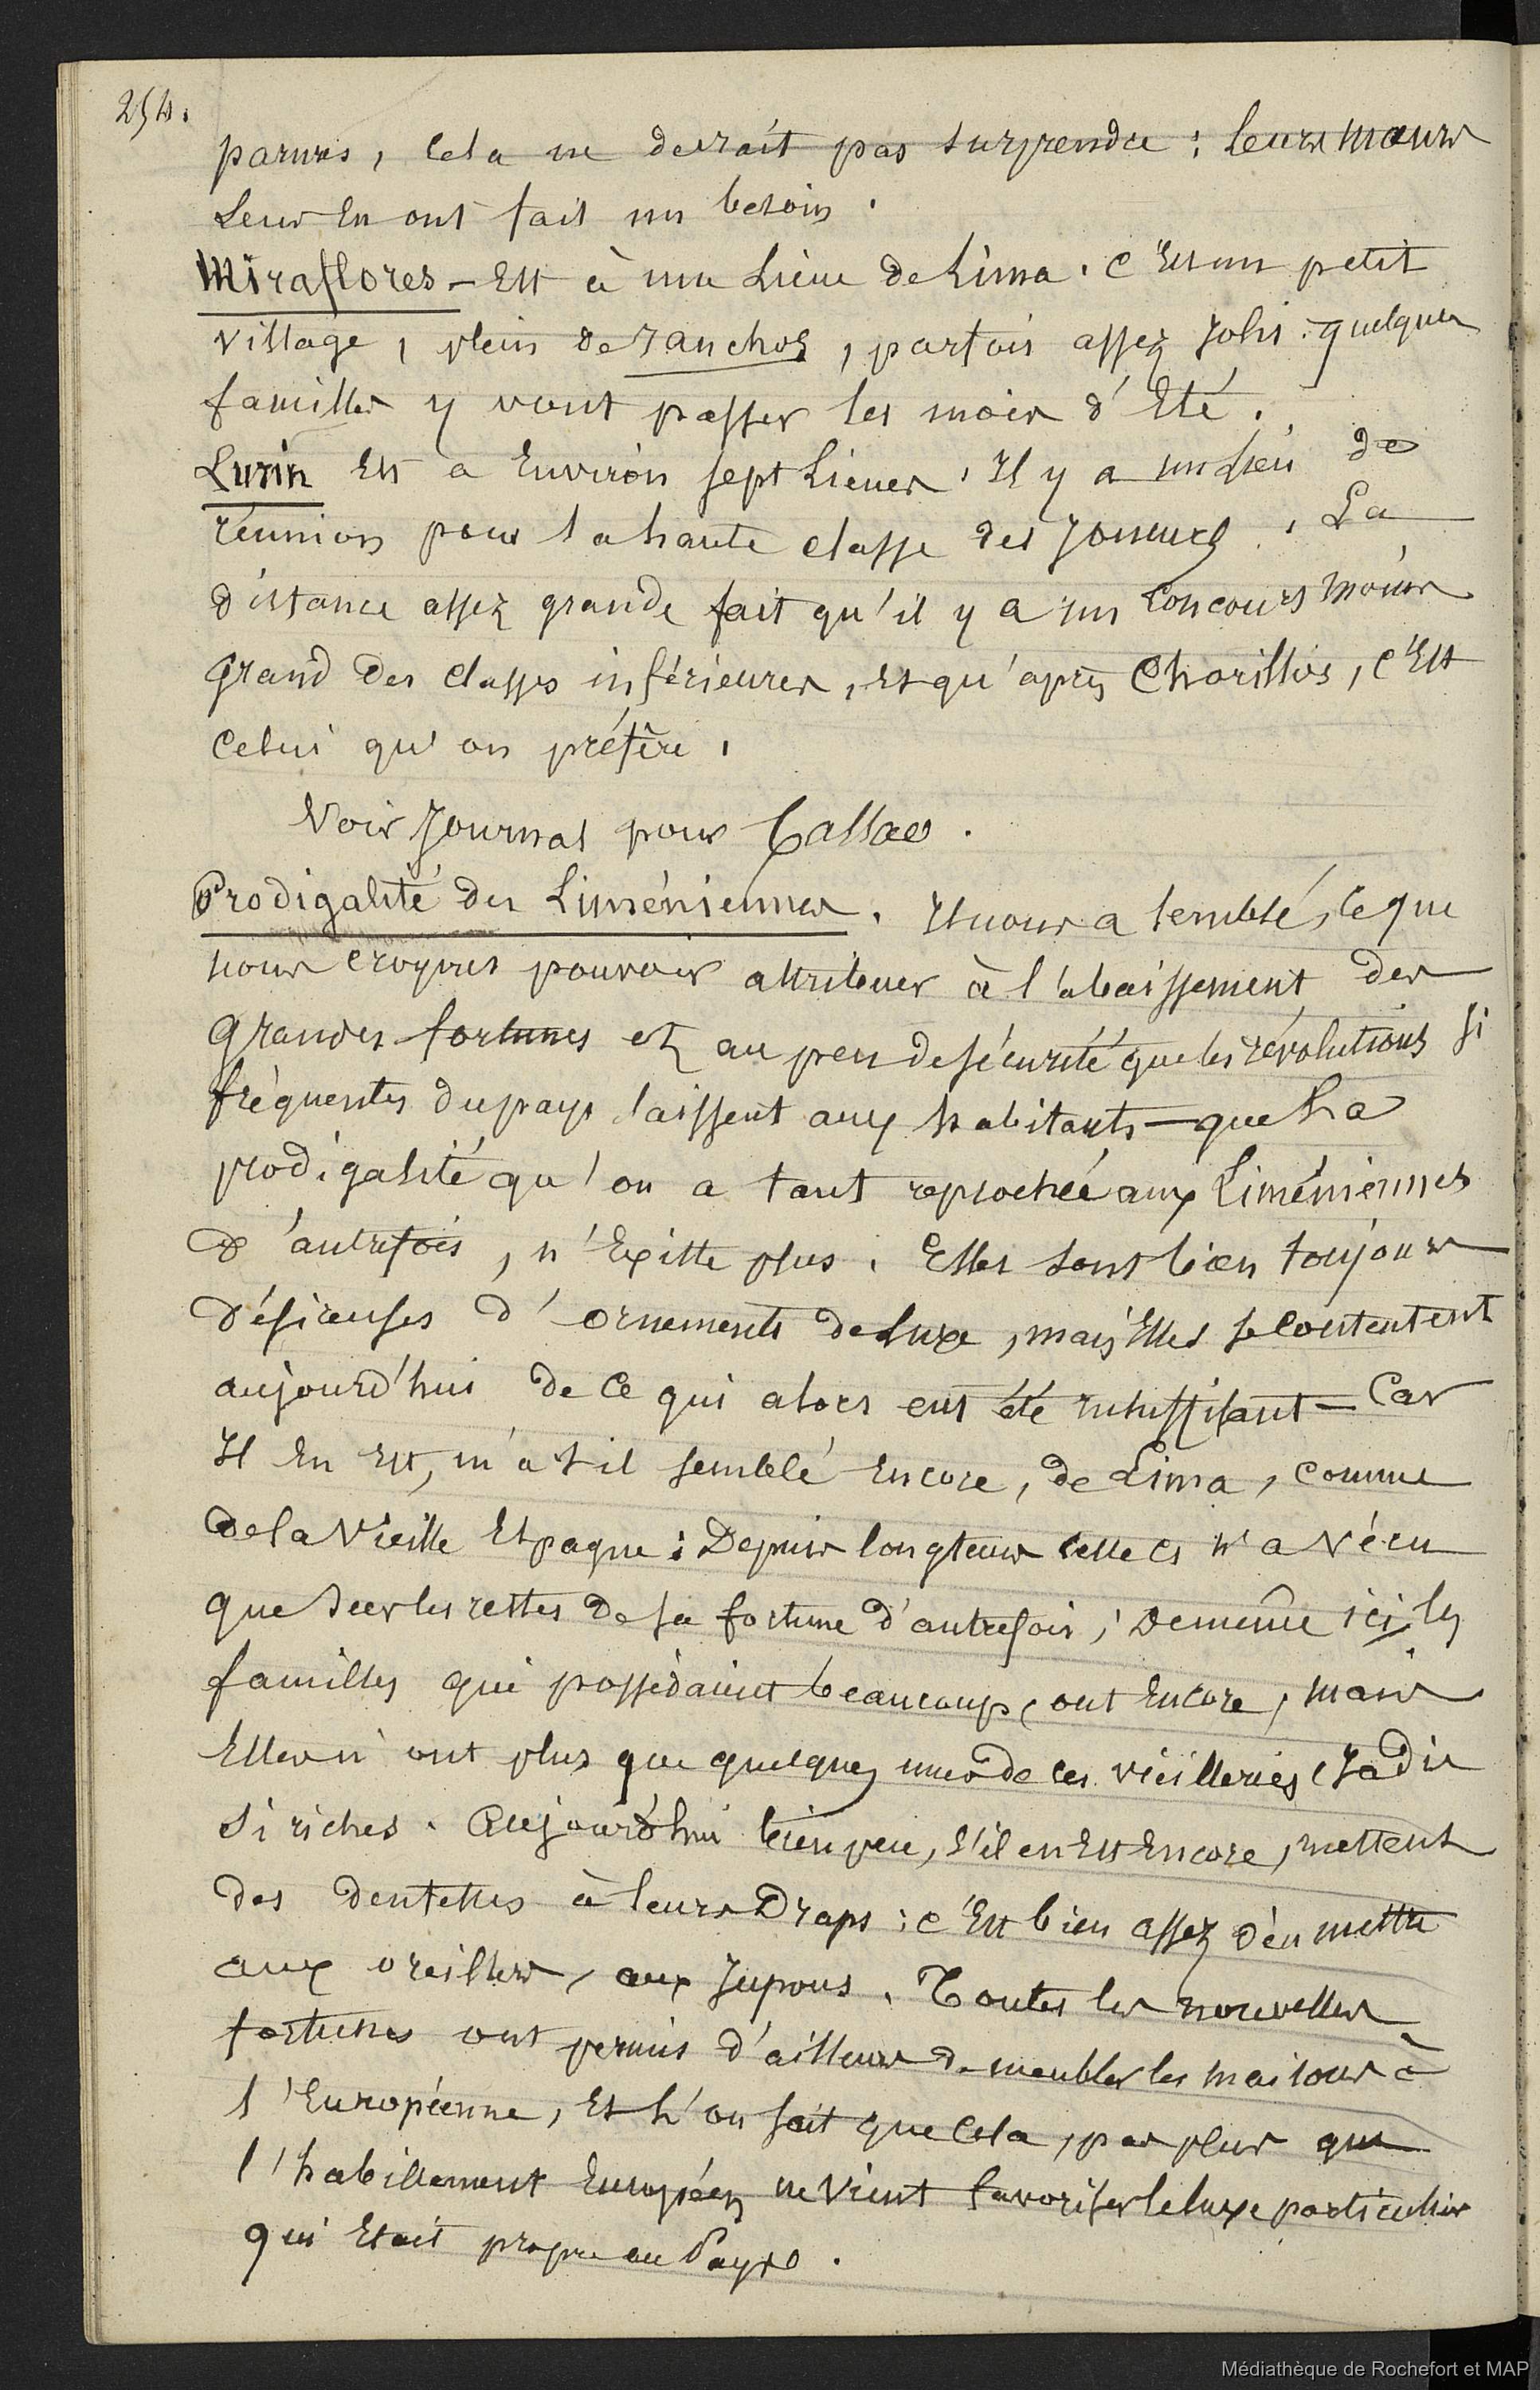 254.
parures, cela ne devrait pas surprendre : leurs mœurs
leur en ont fait un besoin.
Miraflores - Est à une Lieue de Lima. C'Est un petit
village, plein de ranchos, parfois assez Jolis. quelques
familles y vont passer les mois d'Eté.
Lurin Est a Environ sept Lieues. Il y a un Lieu de
réunion pour la haute classe des Joueurs. La
distance assez grande fait qu'il y a un Concours moins
grand des classes inférieures, et qu'après Chorillos, c'Est
celui qu'on préfère.
Voir Journal pour Callao.
Prodigalité des Liméniennes. Il nous a semblé, ce que
nous croyons pouvoir attribuer à l'abaissement des
grandes fortunes et au peu de sécurité que les révolutions si
fréquentes du pays laissent aux habitants - que La
prodigalité qu'on a tant reprochée aux Liméniennes
d'autrefois, n'Existe plus. Elles sont bien toujours
désireuses d'ornements de Luxe, mais Elles se contentent
aujourd'hui de ce qui alors eut été insuffisant - Car
Il En Est, m'a t-il semblé Encore, de Lima, comme
de la Vieille Espagne : Depuis longtems celle ci n'a vécu
que sur les restes de sa fortune d'autrefois ; De même ici les
familles qui possédaient beaucoup, ont Encore, mais
Elles n'ont plus que quelques unes de ces vieilleries, Jadis
si riches. Aujourd'hui bien peu, s'il en Est Encore, mettent
des dentelles à leurs Draps : c'Est bien assez d'en mettre
aux oreillers, aux Jupons. Toutes les nouvelles
fortunes ont permis d'ailleurs de meubler les maisons à
l'Européenne, Et L'on sait que cela, pas plus que
l'habillement Européen ne vient favoriser le luxe particulier
qui Etait propre au Pays.
Médiathèque de Rochefort et MAP